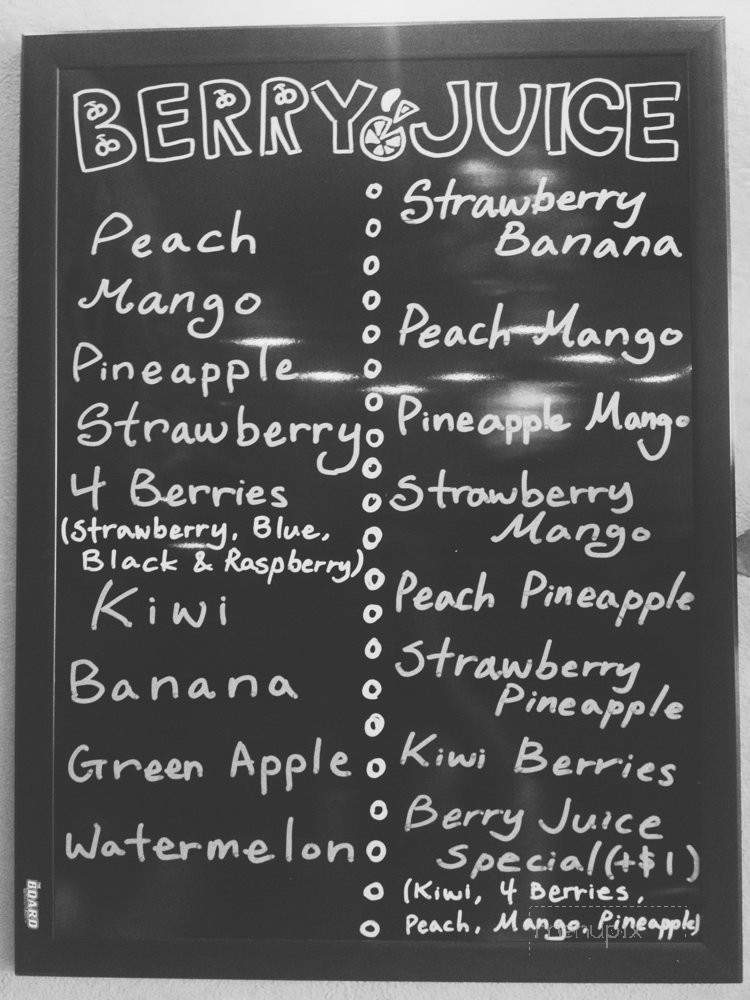 BERRY JUICE
Peach
Mango
Pineapple
Strawberry
4 Berries
(Strawberry, Blue,
Black & Raspberry)
Kiwi
Banana
Green Apple
Watermelon
Strawberry
Banana
Peach Mango
Pineapple Mango
Strawberry
Mango
Peach Pineapple
Strawberry
Pineapple
Kiwi Berries
Berry Juice
Special (+$1)
(Kiwi, 4 Berries,
Peach, Mango, Pineapple)
THE BOARD
menupix